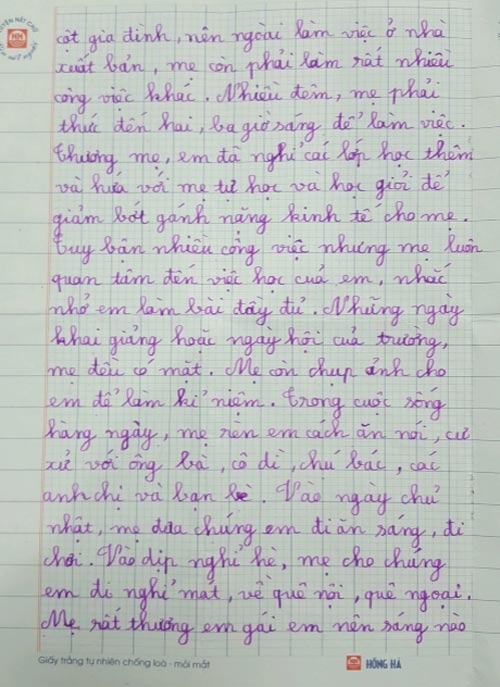 cột gia đình, nên ngoài làm việc ở nhà
xuất bản, mẹ còn phải làm rất nhiều
công việc khác. Nhiều đêm, mẹ phải
thức đến hai, ba giờ sáng để làm việc.
Thương mẹ, em đã nghỉ các lớp học thêm
và hứa với mẹ tự học và học giỏi để
giảm bớt gánh nặng kinh tế cho mẹ.
Tuy bận nhiều công việc nhưng mẹ luôn
quan tâm đến việc học của em, nhắc
nhở em làm bài đầy đủ. Những ngày
khai giảng hoặc ngày hội của trường,
mẹ đều có mặt. Mẹ còn chụp ảnh cho
em để làm kỉ niệm. Trong cuộc sống
hàng ngày, mẹ rèn em cách ăn nói, cư
xử với ông bà, cô dì, chú bác, các
anh chị và bạn bè. Vào ngày chủ
nhật, mẹ đưa chúng em đi ăn sáng, đi
chơi. Vào dịp nghỉ hè, mẹ cho chúng
em đi nghỉ mát, về quê nội, quê ngoại.
Mẹ rất thương em gái em nên sáng nào
Giấy trắng tự nhiên chống loá - mỏi mắt
HỒNG HÀ